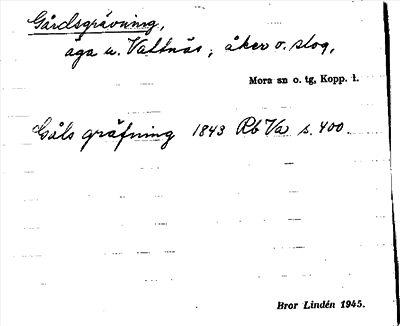 Gårdsgrävning,
äga u. Valtnäs, åker o. slog,
Mora sn o. tg, Kopp. l.
Gåls gräfning 1843 Rb Va s. 400.
Bror Lindén 1945.